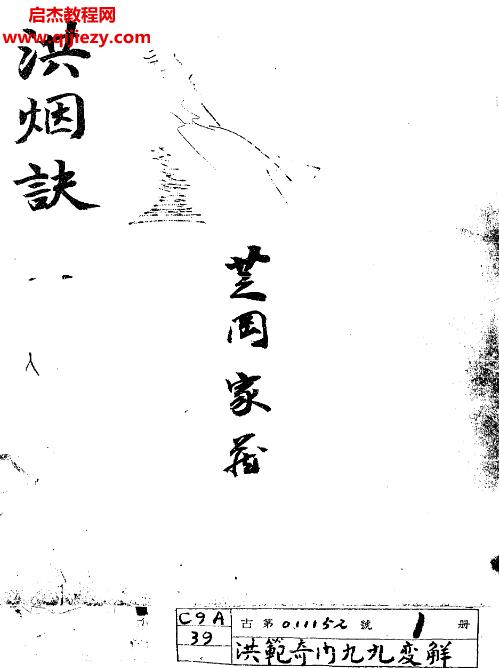 启杰教程网
www.qijiezy.com
洪烟訣
芝岡家藏
C9A
39
古第011152號 1 册
洪範奇门九九变解